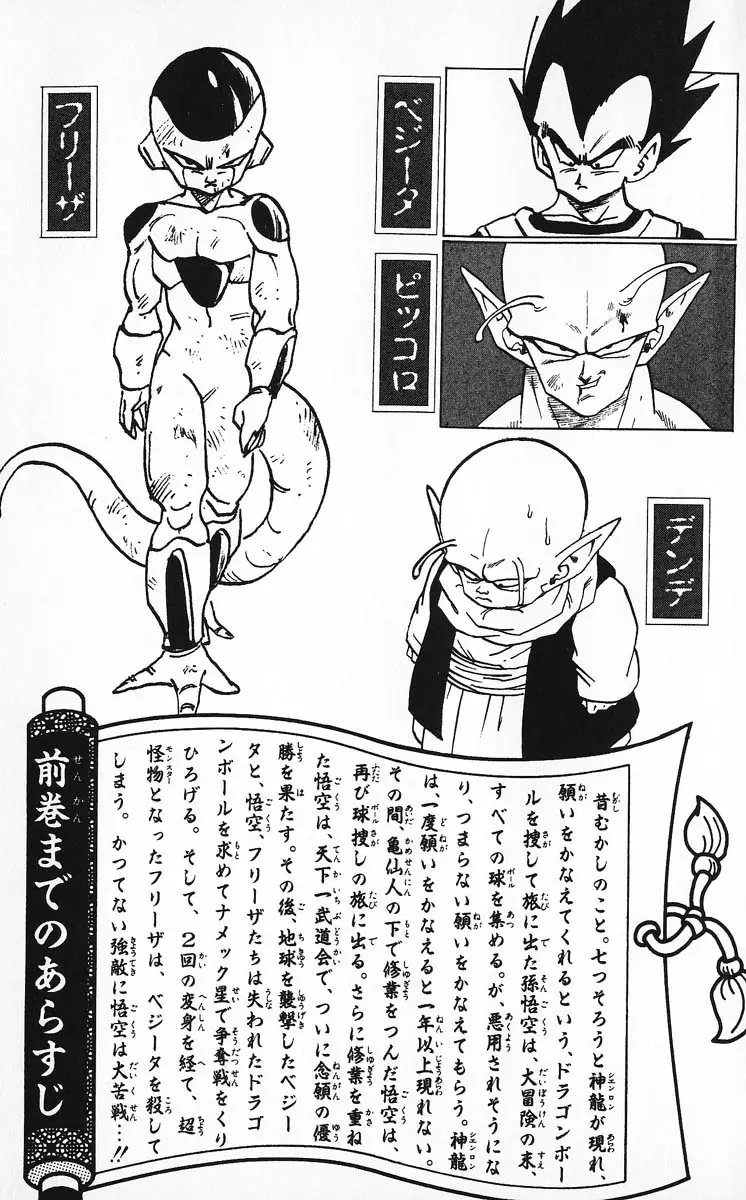 ベジータ
ピッコロ
フリーザ
デンデ
前巻までのあらすじ
昔むかしのこと。七つそろうと神龍が現れ、
願いをかなえてくれるという、ドラゴンボー
ルを捜して旅に出た孫悟空は、大冒険の末、
すべての球を集める。が、悪用されそうにな
り、つまらない願いをかなえてもらう。神龍
は、一度願いをかなえると一年以上現れない。
その間、亀仙人の下で修業をつんだ悟空は、
再び球捜しの旅に出る。さらに修業を重ね
た悟空は、天下一武道会で、ついに念願の優
勝を果たす。その後、地球を襲撃したベジー
タと、悟空、フリーザたちは失われたドラゴ
ンボールを求めてナメック星で争奪戦をくり
ひろげる。そして、2回の変身を経て、超
怪物となったフリーザは、ベジータを殺して
しまう。かつてない強敵に悟空は大苦戦…!!